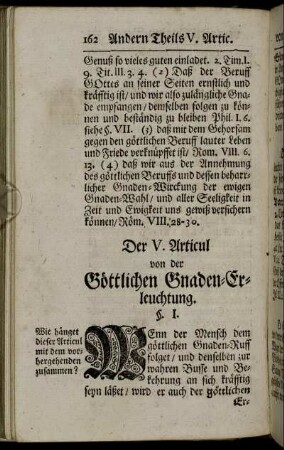 162 Andern Theils V. Artic.
Genuß so vieles guten einladet. 2. Tim. I.
9. Tit. III. 3. 4. (2) Daß der Beruff
GOttes an seiner Seiten ernstlich und
kräfftig ist/ und wir also zulängliche Gna-
de empfangen/ demselben folgen zu kön-
nen und beständig zu bleiben Phil. I. 6.
siehe §. VII. (3) daß mit dem Gehorsam
gegen den göttlichen Beruff lauter Leben
und Friede verknüpffet ist/ Rom. VIII. 6.
13. (4) daß wir aus der Annehmung
des göttlichen Beruffs und dessen beharr-
licher Gnaden-Wirckung der ewigen
Gnaden-Wahl/ und aller Seeligkeit in
Zeit und Ewigkeit uns gewiß versichern
können/ Röm. VIII. 28-30.
Der V. Articul
von der
Göttlichen Gnaden-Er-
leuchtung.
§. I.
Wie hänget
dieser Articul
mit dem vor-
hergehenden
zusammen?
WEnn der Mensch dem
göttlichen Gnaden-Ruff
folget/ und denselben zur
wahren Busse und Be-
kehrung an sich kräfftig
seyn läßet/ wird er auch der göttlichen
Er-